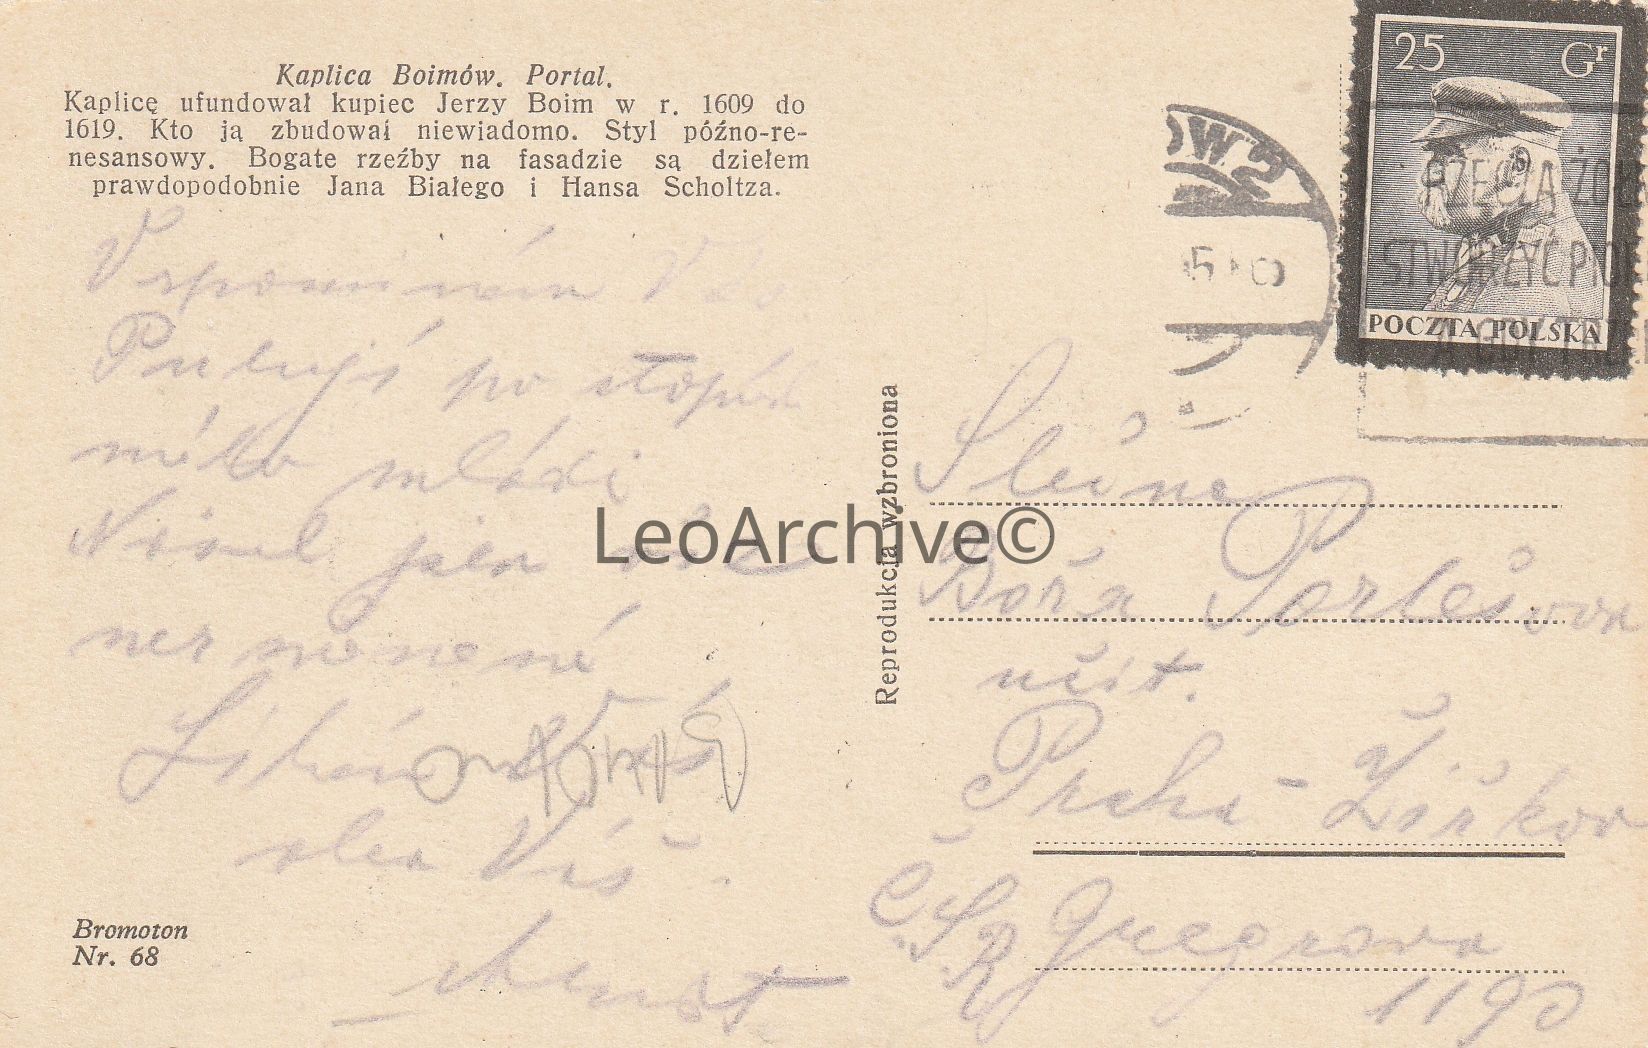 Kaplica Boimów. Portal.
Kaplicę ufundował kupiec Jerzy Boim w r. 1609 do
1619. Kto ją zbudował niewiadomo. Styl późno-re-
nesansowy. Bogate rzeźby na fasadzie są dziełem
prawdopodobnie Jana Białego i Hansa Scholtza.
Vzpomínám Vás
Putuji po stopách
mého mládí
Našel jsem vše
nezměněné
Líbám Vás
Váš
Bromoton
Nr. 68
Reprodukcja wzbroniona
LeoArchive©
25 Gr
POCZTA POLSKA
ÓW 2
RZECZĄ ŻOŁ
STWORZYĆ
Slečna
Boža
učit.
Praha - Žižkov
Č.S.R. Gregrova
1190